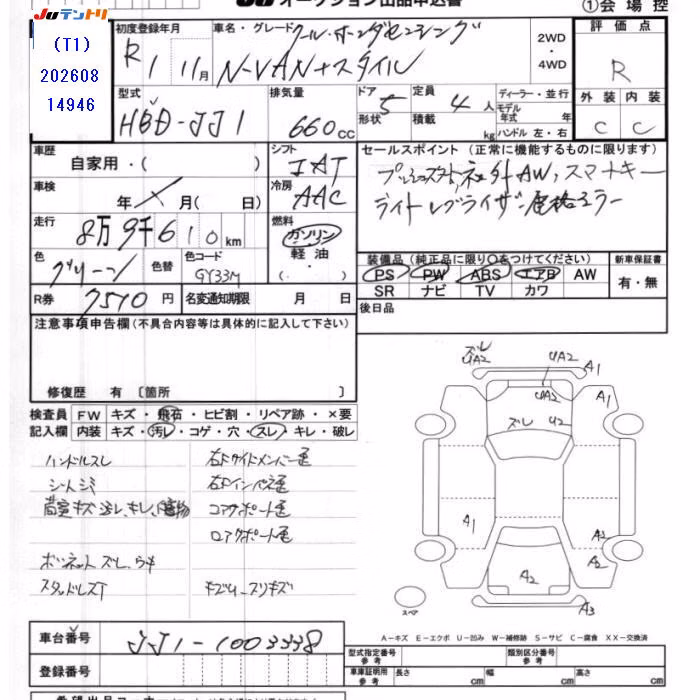 JUテントリ
JU オークション出品申込書
①会場控
(T1)
202608
14946
初度登録年月
R1 11月
車名・グレード
クール・ホンダセンシング
N-VAN+スタイル
2WD
・
4WD
評価点
R
外装 内装
C C
型式
HBD-JJ1
排気量
660cc
ドア 5
形状
定員 4人
積載 kg
ディーラー・並行
モデル年式 年
ハンドル 左・右
車歴
自家用・( )
シフト
IAT
車検
年 月( 日)
冷房
AAC
セールスポイント (正常に機能するものに限ります)
プッシュスタート, 社外AW, スマートキー
ライトレブライザー, 電格ミラー
走行
8万9千610km
燃料
ガソリン
軽油
( )
色
グリーン
色替
色コード
GY33M
装備品 (純正品に限り○をつけてください)
PS PW ABS エアB AW
SR ナビ TV カワ
新車保証書
有・無
R券
7510円
名変通知期限 月 日
後日品
注意事項申告欄(不具合内容等は具体的に記入して下さい)
修復歴 有〔箇所 〕
検査員記入欄
FW キズ・飛石・ヒビ割・リペア跡・×要
内装 キズ・汚レ・コゲ・穴・スレ・キレ・破レ
ハンドルスレ
シートシミ
ボンネットズレ、
スタッドレスT
右Fサイドメンバー
右Fインパネ
コアサポート
ロアサポート
キズ スリキズ
ズレ
UA2
UA2
A1
UA2
A1
ズレ U2
A1
A2
A2
A2
A3
スペア
A−キズ E−エクボ U−凹み W−補修跡 S−サビ C−腐食 XX−交換済
車台番号
JJ1-1003338
登録番号
型式指定番号
参考
類別区分番号
参考
車庫証明用
参考
長さ cm
幅 cm
高さ cm